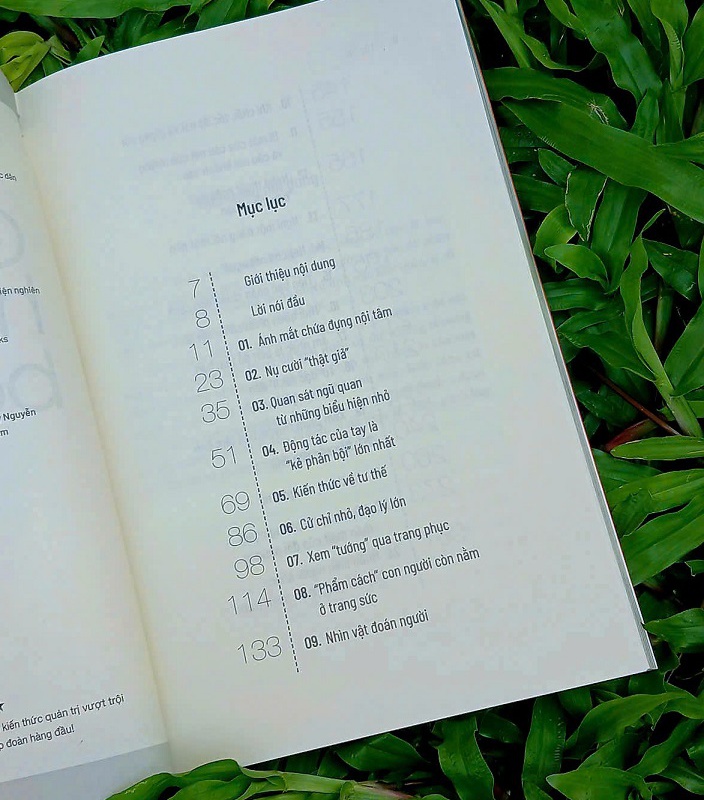 c dân
iện nghiên
ks
Nguyễn
m
kiến thức quản trị vượt trội
đoàn hàng đầu!
Mục lục
7 Giới thiệu nội dung
8 Lời nói đầu
11 01. Ánh mắt chứa đựng nội tâm
23 02. Nụ cười "thật giả"
35 03. Quan sát ngũ quan
từ những biểu hiện nhỏ
51 04. Động tác của tay là
"kẻ phản bội" lớn nhất
69 05. Kiến thức về tư thế
86 06. Cử chỉ nhỏ, đạo lý lớn
98 07. Xem "tướng" qua trang phục
114 08. "Phẩm cách" con người còn nằm
ở trang sức
133 09. Nhìn vật đoán người